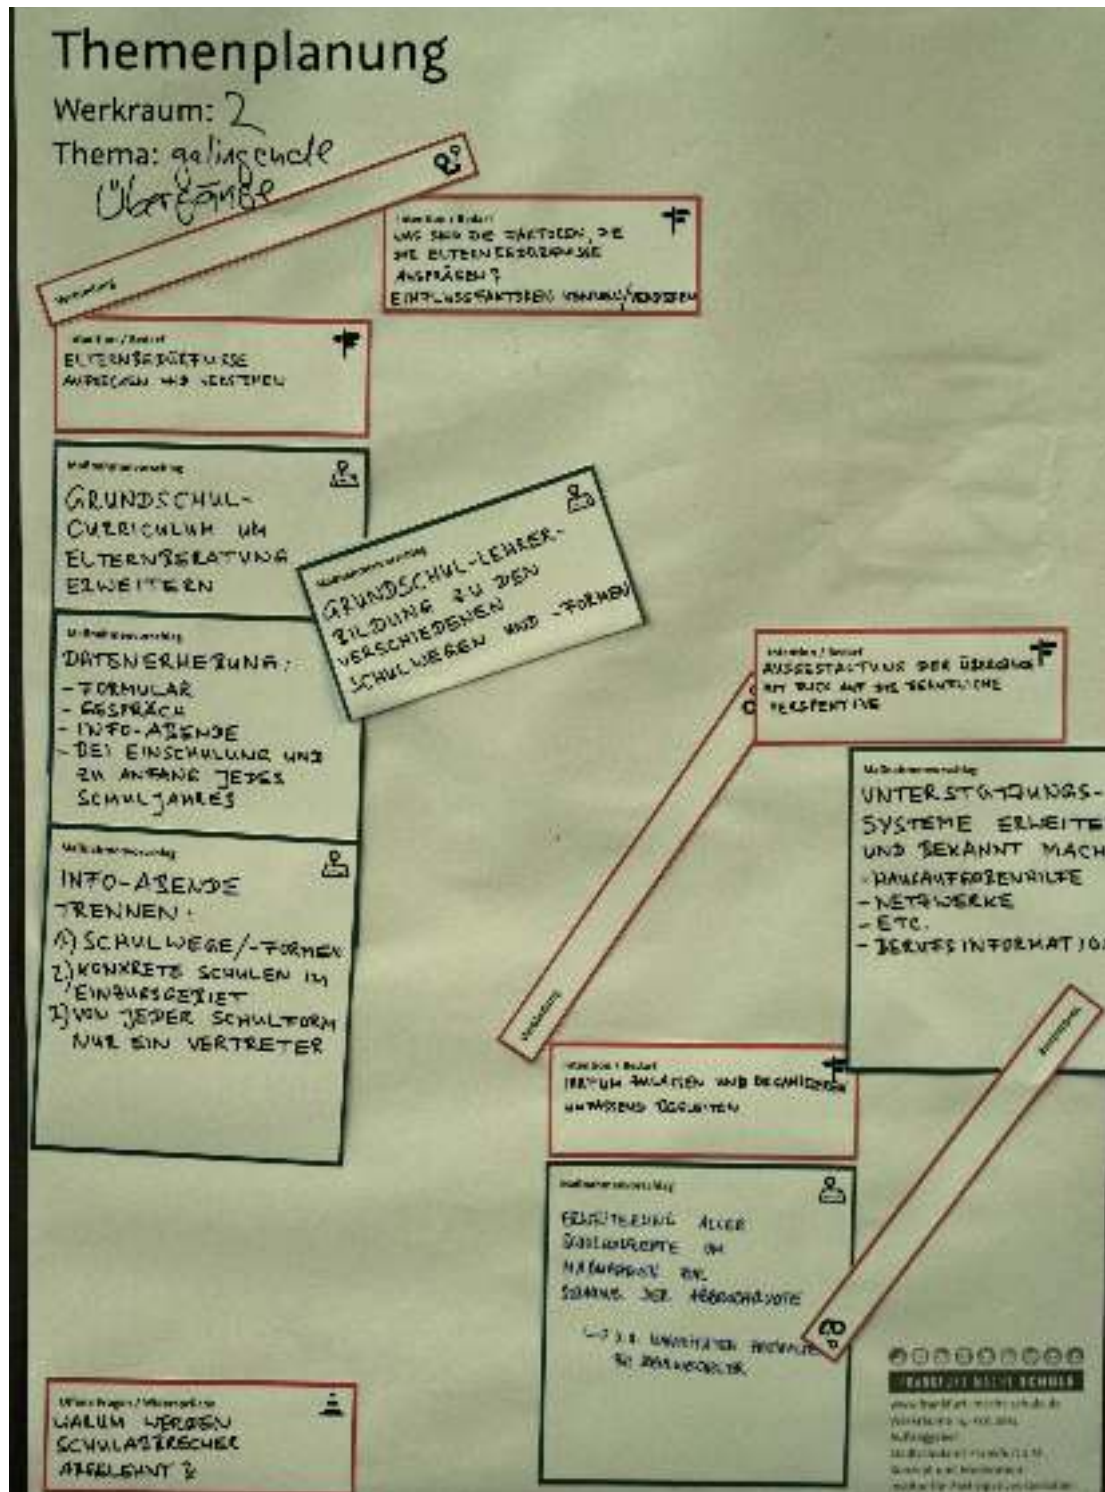 Themenplanung
Werkraum: 2
Thema: gelingende
Übergänge
Verbindung
Intention / Bedarf
WAS SIND DIE FAKTOREN, DIE
DIE ELTERNBEDÜRFNISSE
AUSPRÄGEN?
EINFLUSSFAKTOREN
Intention / Bedarf
ELTERNBEDÜRFNISSE
AUFDECKEN UND VERSTEHEN
Maßnahmenvorschlag
GRUNDSCHUL-
CURRICULUM UM
ELTERNBERATUNG
ERWEITERN
Maßnahmenvorschlag
GRUNDSCHUL-LEHRER-
BILDUNG ZU DEN
VERSCHIEDENEN
SCHULWEGEN UND -FORMEN
Maßnahmenvorschlag
DATENERHEBUNG:
- FORMULAR
- GESPRÄCH
- INFO-ABENDE
- BEI EINSCHULUNG UND
ZU ANFANG JEDES
SCHULJAHRES
Maßnahmenvorschlag
INFO-ABENDE
TRENNEN:
1) SCHULWEGE/-FORMEN
2) KONKRETE SCHULEN IM
EINZUGSGEBIET
3) VON JEDER SCHULFORM
NUR EIN VERTRETER
Intention / Bedarf
AUSGESTALTUNG DER ÜBERGÄNGE
MIT BLICK AUF DIE BERUFLICHE
PERSPEKTIVE
Maßnahmenvorschlag
UNTERSTÜTZUNGS-
SYSTEME ERWEITE
UND BEKANNT MACH
- HAUSAUFGABENHILFE
- NETZWERKE
- ETC.
- BERUFSINFORMATIO
Verbindung
Verbindung
Intention / Bedarf
IRRTUM ZULASSEN UND
UMFASSEND BEGLEITEN
Maßnahmenvorschlag
ERWEITERUNG ALLER
SCHULKONZEPTE UM
MASSNAHMEN ZUR
SENKUNG DER ABBRECHERQUOTE
Offene Fragen / Widersprüche
WARUM WERDEN
SCHULABBRECHER
ABGELEHNT?
FRANKFURT MACHT SCHULE
www.frankfurt-macht-schule.de